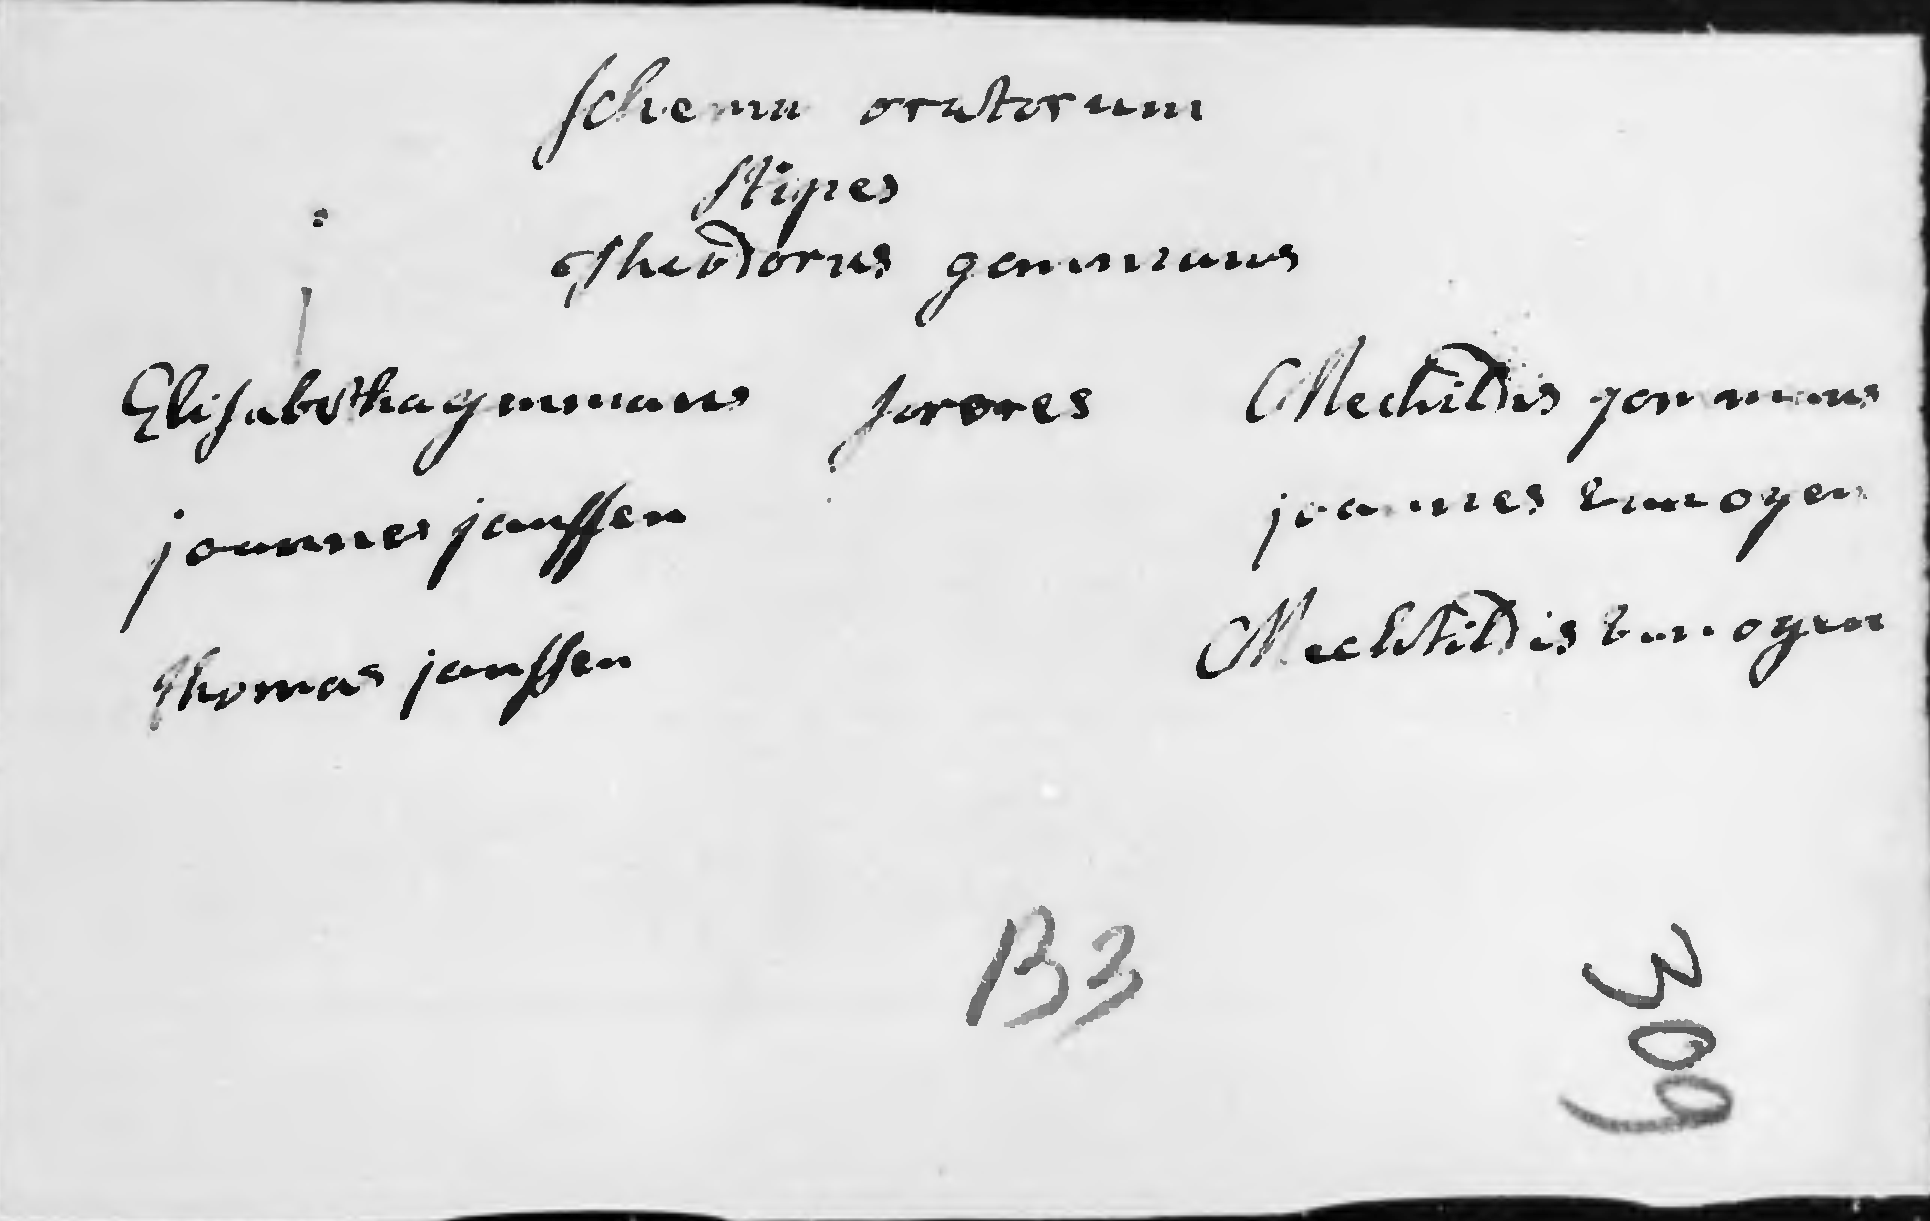 Schema oratorum
Stipes
Theodorus gommans
Elisabetha gommans sorores Mechtildis gommans
joannes janssen joannes
thomas janssen Mechtildis
B3
309